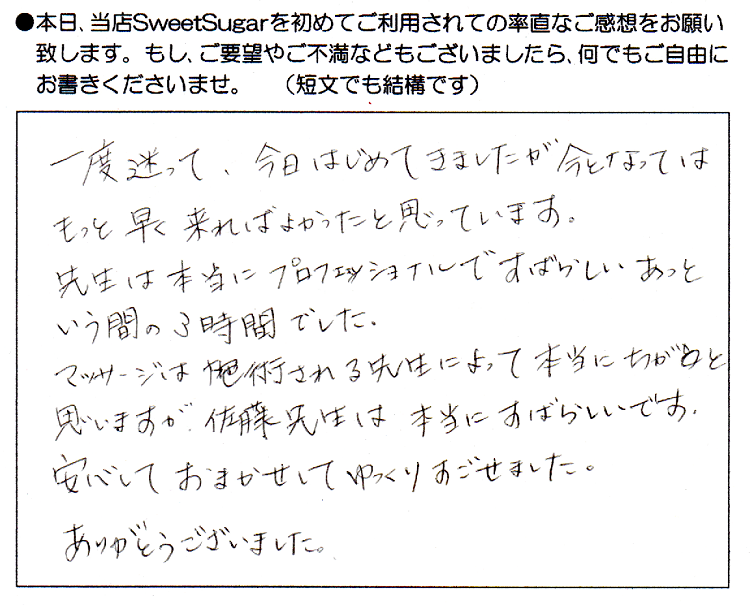 ●本日、当店SweetSugarを初めてご利用されての率直なご感想をお願い
致します。もし、ご要望やご不満などもございましたら、何でもご自由に
お書きくださいませ。　（短文でも結構です）
一度迷って、今日はじめてきましたが今となっては
もっと早く来ればよかったと思っています。
先生は本当にプロフェッショナルですばらしいあっと
いう間の3時間でした。
マッサージは施術される先生によって本当にちがうと
思いますが佐藤先生は本当にすばらしいです。
安心しておまかせしてゆっくりすごせました。
ありがとうございました。